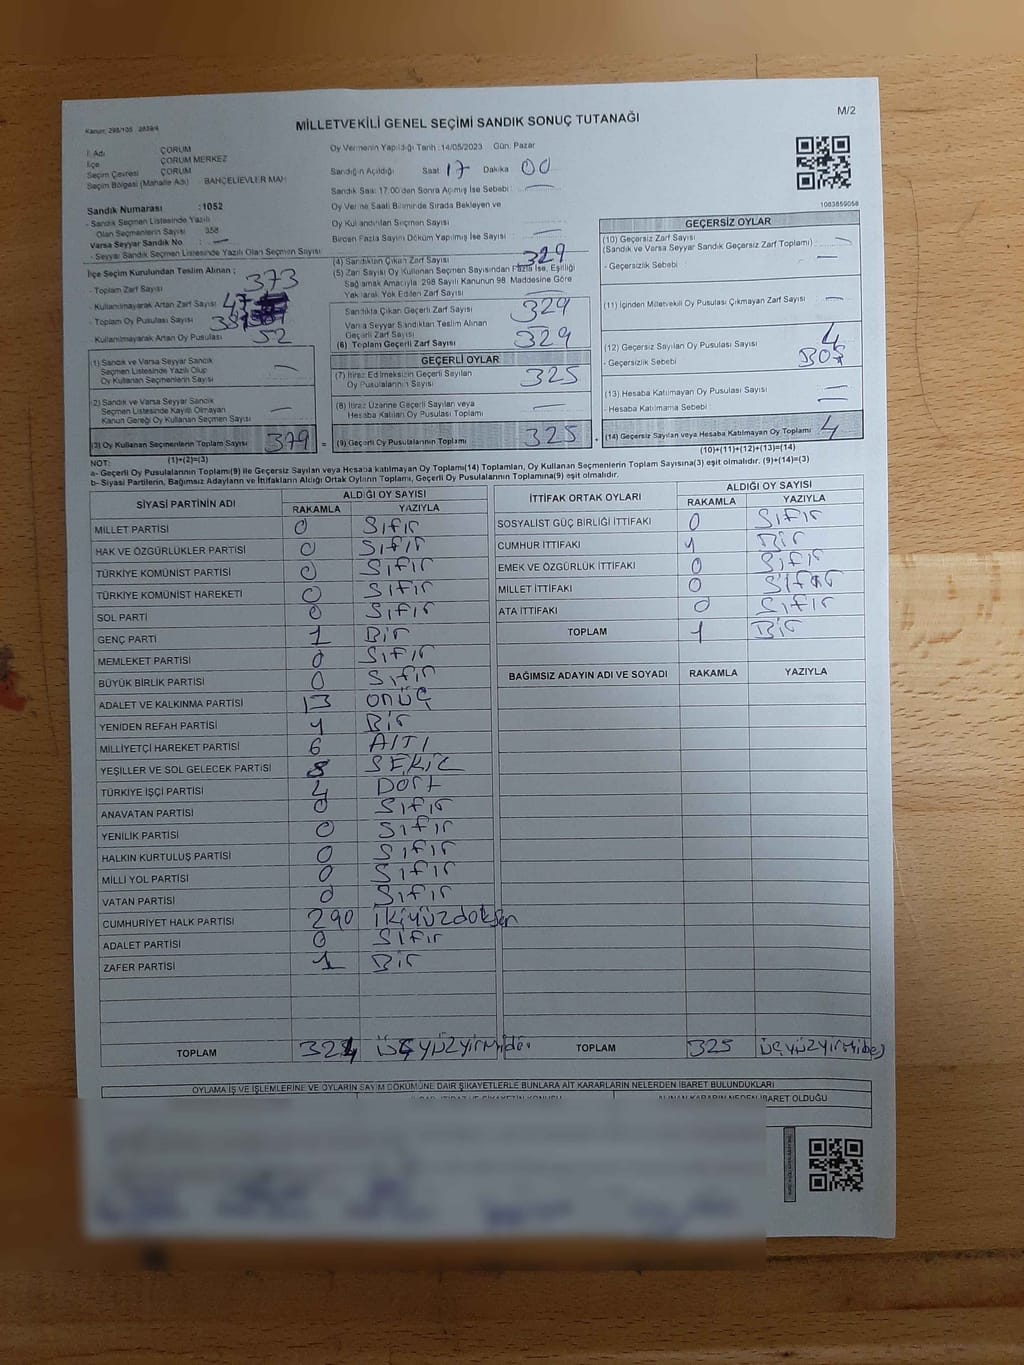 M/2
Kanun: 298/105 , 2839/4
MİLLETVEKİLİ GENEL SEÇİMİ SANDIK SONUÇ TUTANAĞI
İl Adı ÇORUM
İlçe ÇORUM MERKEZ
Seçim Çevresi ÇORUM
Seçim Bölgesi (Mahalle Adı) BAHÇELİEVLER MAH
Sandık Numarası :1052
- Sandık Seçmen Listesinde Yazılı
Olan Seçmenlerin Sayısı 358
Varsa Seyyar Sandık No : —
- Seyyar Sandık Seçmen Listesinde Yazılı Olan Seçmen Sayısı
Oy Vermenin Yapıldığı Tarih :14/05/2023 Gün: Pazar
Sandığın Açıldığı Saat 17 Dakika 00
Sandık Saat 17:00'den Sonra Açılmış İse Sebebi : —
Oy Verme Saati Bitiminde Sırada Bekleyen ve
Oy Kullandırılan Seçmen Sayısı —
Birden Fazla Sayım Döküm Yapılmış İse Sayısı : —
1083859058
İlçe Seçim Kurulundan Teslim Alınan ;
- Toplam Zarf Sayısı 373
- Kullanılmayarak Artan Zarf Sayısı
- Toplam Oy Pusulası Sayısı
- Kullanılmayarak Artan Oy Pusulası 52
(1) Sandık ve Varsa Seyyar Sandık
Seçmen Listesinde Yazılı Olup
Oy Kullanan Seçmenlerin Sayısı —
(2) Sandık ve Varsa Seyyar Sandık
Seçmen Listesinde Kayıtlı Olmayan
Kanun Gereği Oy Kullanan Seçmen Sayısı —
(3) Oy Kullanan Seçmenlerin Toplam Sayısı 379 =
(1)+(2)=(3)
(4) Sandıktan Çıkan Zarf Sayısı 329
(5) Zarf Sayısı Oy Kullanan Seçmen Sayısından Fazla İse, Eşitliği
Sağlamak Amacıyla 298 Sayılı Kanunun 98. Maddesine Göre
Yakılarak Yok Edilen Zarf Sayısı —
Sandıkta Çıkan Geçerli Zarf Sayısı 329
Varsa Seyyar Sandıktan Teslim Alınan
Geçerli Zarf Sayısı —
(6) Toplam Geçerli Zarf Sayısı 329
GEÇERLİ OYLAR
(7) İtiraz Edilmeksizin Geçerli Sayılan
Oy Pusulalarının Sayısı 325
(8) İtiraz Üzerine Geçerli Sayılan veya
Hesaba Katılan Oy Pusulası Toplamı —
(9) Geçerli Oy Pusulalarının Toplamı 325 +
GEÇERSİZ OYLAR
(10) Geçersiz Zarf Sayısı
(Sandık ve Varsa Seyyar Sandık Geçersiz Zarf Toplamı) : —
- Geçersizlik Sebebi : —
(11) İçinden Milletvekili Oy Pusulası Çıkmayan Zarf Sayısı : —
(12) Geçersiz Sayılan Oy Pusulası Sayısı : 4
- Geçersizlik Sebebi : BOŞ
(13) Hesaba Katılmayan Oy Pusulası Sayısı —
- Hesaba Katılmama Sebebi : —
(14) Geçersiz Sayılan veya Hesaba Katılmayan Oy Toplamı 4
(10)+(11)+(12)+(13)=(14)
NOT:
a- Geçerli Oy Pusulalarının Toplamı(9) ile Geçersiz Sayılan veya Hesaba katılmayan Oy Toplamı(14) Toplamları, Oy Kullanan Seçmenlerin Toplam Sayısına(3) eşit olmalıdır. (9)+(14)=(3)
b- Siyasi Partilerin, Bağımsız Adayların ve İttifakların Aldığı Ortak Oyların Toplamı, Geçerli Oy Pusulalarının Toplamına(9) eşit olmalıdır.
SİYASİ PARTİNİN ADI ALDIĞI OY SAYISI
RAKAMLA YAZIYLA
MİLLET PARTİSİ 0 Sıfır
HAK VE ÖZGÜRLÜKLER PARTİSİ 0 Sıfır
TÜRKİYE KOMÜNİST PARTİSİ 0 Sıfır
TÜRKİYE KOMÜNİST HAREKETİ 0 Sıfır
SOL PARTİ 0 Sıfır
GENÇ PARTİ 1 Bir
MEMLEKET PARTİSİ 0 Sıfır
BÜYÜK BİRLİK PARTİSİ 0 Sıfır
ADALET VE KALKINMA PARTİSİ 13 onüç
YENİDEN REFAH PARTİSİ 1 Bir
MİLLİYETÇİ HAREKET PARTİSİ 6 Altı
YEŞİLLER VE SOL GELECEK PARTİSİ 8 SEKİZ
TÜRKİYE İŞÇİ PARTİSİ 4 Dört
ANAVATAN PARTİSİ 0 Sıfır
YENİLİK PARTİSİ 0 Sıfır
HALKIN KURTULUŞ PARTİSİ 0 Sıfır
MİLLİ YOL PARTİSİ 0 Sıfır
VATAN PARTİSİ 0 Sıfır
CUMHURİYET HALK PARTİSİ 290 ikiyüzdoksan
ADALET PARTİSİ 0 Sıfır
ZAFER PARTİSİ 1 Bir
TOPLAM 324 üçyüzyirmidö
İTTİFAK ORTAK OYLARI ALDIĞI OY SAYISI
RAKAMLA YAZIYLA
SOSYALIST GÜÇ BİRLİĞİ İTTİFAKI 0 Sıfır
CUMHUR İTTİFAKI 1 Bir
EMEK VE ÖZGÜRLÜK İTTİFAKI 0 Sıfır
MİLLET İTTİFAKI 0 Sıfır
ATA İTTİFAKI 0 Sıfır
TOPLAM 1 Bir
BAĞIMSIZ ADAYIN ADI VE SOYADI RAKAMLA YAZIYLA
TOPLAM 325 üçyüzyirmibeş
OYLAMA İŞ VE İŞLEMLERİNE VE OYLARIN SAYIM DÖKÜMÜNE DAİR ŞİKAYETLERLE BUNLARA AİT KARARLARIN NELERDEN İBARET BULUNDUKLARI
ALINAN KARARIN NEDEN İBARET OLDUĞU